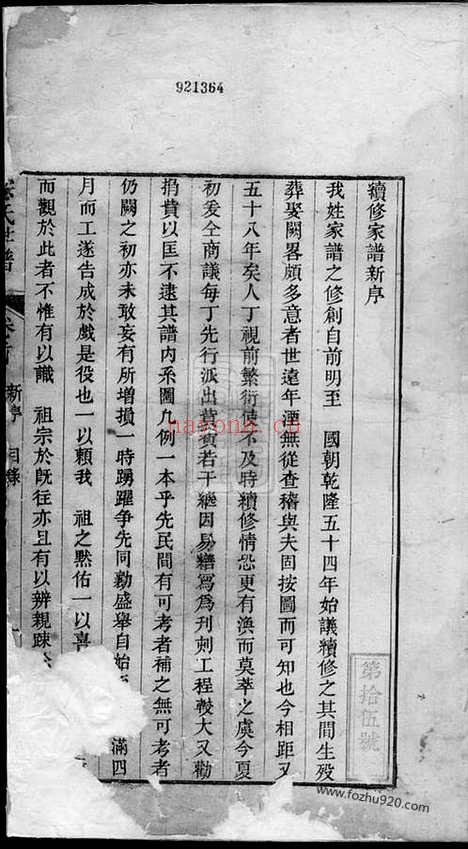 921364
續修家譜新序
我姓家譜之修創自前明至 國朝乾隆五十四年始議續修之其間生殁
葬娶闕畧頗多意者世遠年湮無從查稽與夫固按圖而可知也今相距又
五十八年矣人丁視前繁衍使不及時續修情恐更有渙而莫萃之虞今夏
初爰仝商議每丁先行派出貲費若干繼因易繕寫為刋刻工程較大又勸
捐費以匡不逮其譜内系圖凡例一本乎先民間有可考者補之無可考者
仍闕之初亦未敢妄有所增損一時踴躍争先同勷盛舉自始 滿四
月而工遂告成於戲是役也一以頼我 祖之黙佑一以喜
而觀於此者不惟有以識 祖宗於旣往亦且有以辨親疎
氏世譜 新序 目錄
第拾伍號
navona.cn
www.fozhu920.com